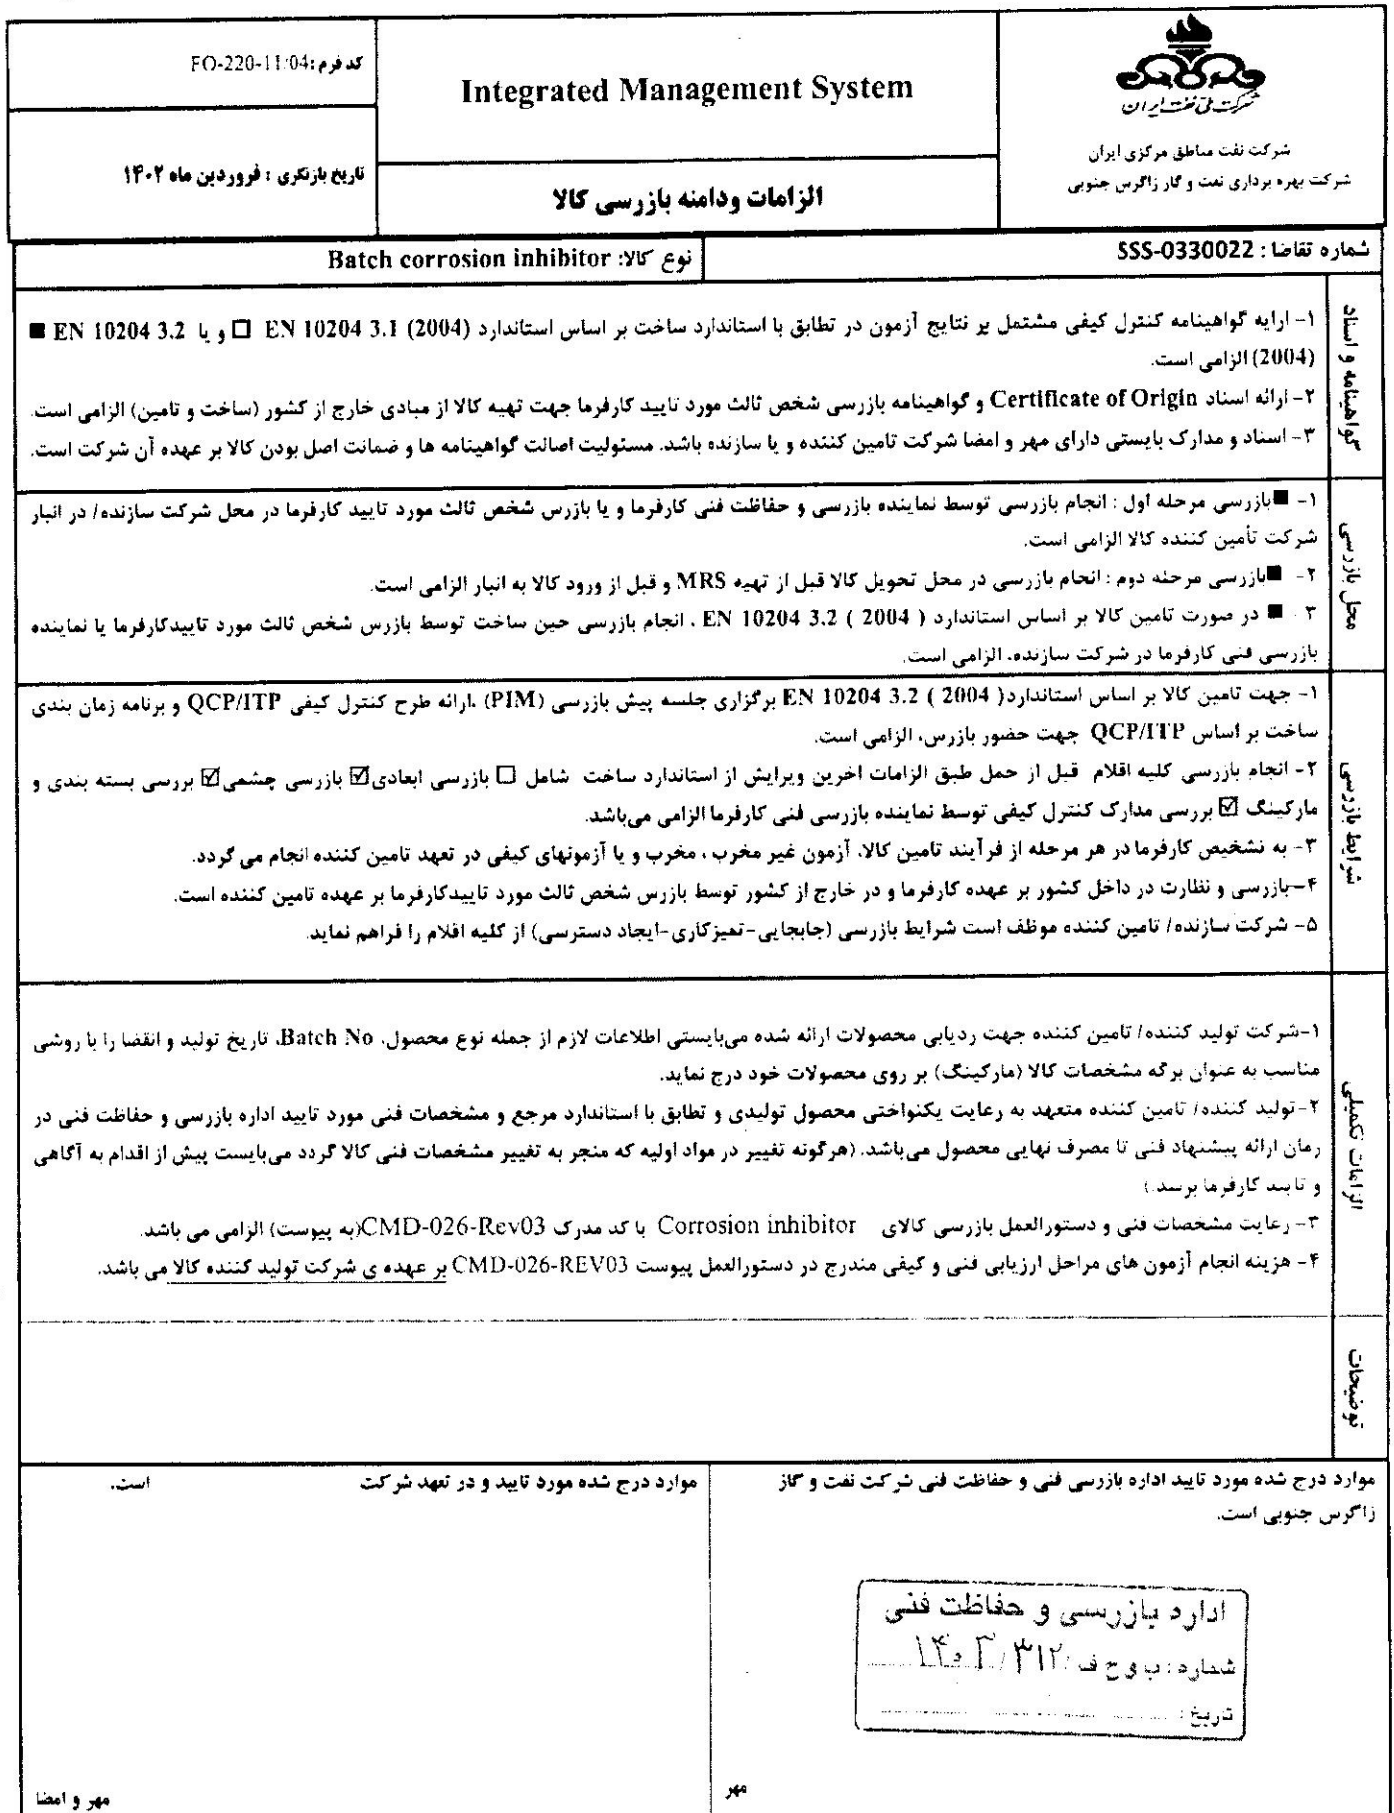 شرکت ملی نفت ایران
شرکت نفت مناطق مرکزی ایران
شرکت بهره برداری نفت و گاز زاگرس جنوبی
Integrated Management System
الزامات ودامنه بازرسی کالا
کد فرم: FO-220-11/04
تاریخ بازنگری : فروردین ماه ۱۴۰۲
شماره تقاضا : SSS-0330022
نوع کالا: Batch corrosion inhibitor
گواهینامه و اسناد
۱- ارایه گواهینامه کنترل کیفی مشتمل بر نتایج آزمون در تطابق با استاندارد ساخت بر اساس استاندارد EN 10204 3.1 (2004) ☐ و یا EN 10204 3.2 ■
(2004) الزامی است.
۲- ارائه اسناد Certificate of Origin و گواهینامه بازرسی شخص ثالث مورد تایید کارفرما جهت تهیه کالا از مبادی خارج از کشور (ساخت و تامین) الزامی است.
۳- اسناد و مدارک بایستی دارای مهر و امضا شرکت تامین کننده و یا سازنده باشد. مسئولیت اصالت گواهینامه ها و ضمانت اصل بودن کالا بر عهده آن شرکت است.
محل بازرسی
۱- ■بازرسی مرحله اول : انجام بازرسی توسط نماینده بازرسی و حفاظت فنی کارفرما و یا بازرس شخص ثالث مورد تایید کارفرما در محل شرکت سازنده/ در انبار
شرکت تأمین کننده کالا الزامی است.
۲- ■بازرسی مرحله دوم : انجام بازرسی در محل تحویل کالا قبل از تهیه MRS و قبل از ورود کالا به انبار الزامی است.
۳- ■ در صورت تامین کالا بر اساس استاندارد EN 10204 3.2 ( 2004 ) ، انجام بازرسی حین ساخت توسط بازرس شخص ثالث مورد تاییدکارفرما یا نماینده
بازرسی فنی کارفرما در شرکت سازنده، الزامی است.
شرایط بازرسی
۱- جهت تامین کالا بر اساس استاندارد( 2004 ) EN 10204 3.2 برگزاری جلسه پیش بازرسی (PIM) ،ارائه طرح کنترل کیفی QCP/ITP و برنامه زمان بندی
ساخت بر اساس QCP/ITP جهت حضور بازرس، الزامی است.
۲- انجام بازرسی کلیه اقلام قبل از حمل طبق الزامات اخرین ویرایش از استاندارد ساخت شامل ☐ بازرسی ابعادی☑ بازرسی چشمی☑ بررسی بسته بندی و
مارکینگ ☑ بررسی مدارک کنترل کیفی توسط نماینده بازرسی فنی کارفرما الزامی می‌باشد.
۳- به تشخیص کارفرما در هر مرحله از فرآیند تامین کالا، آزمون غیر مخرب ، مخرب و یا آزمونهای کیفی در تعهد تامین کننده انجام می گردد.
۴-بازرسی و نظارت در داخل کشور بر عهده کارفرما و در خارج از کشور توسط بازرس شخص ثالث مورد تاییدکارفرما بر عهده تامین کننده است.
۵- شرکت سازنده/ تامین کننده موظف است شرایط بازرسی (جابجایی-تمیزکاری-ایجاد دسترسی) از کلیه اقلام را فراهم نماید.
الزامات تکمیلی
۱-شرکت تولید کننده/ تامین کننده جهت ردیابی محصولات ارائه شده می‌بایستی اطلاعات لازم از جمله نوع محصول، Batch No، تاریخ تولید و انقضا را با روشی
مناسب به عنوان برگه مشخصات کالا (مارکینگ) بر روی محصولات خود درج نماید.
۲-تولید کننده/ تامین کننده متعهد به رعایت یکنواختی محصول تولیدی و تطابق با استاندارد مرجع و مشخصات فنی مورد تایید اداره بازرسی و حفاظت فنی در
زمان ارائه پیشنهاد فنی تا مصرف نهایی محصول می‌باشد. (هرگونه تغییر در مواد اولیه که منجر به تغییر مشخصات فنی کالا گردد می‌بایست پیش از اقدام به آگاهی
و تایید کارفرما برسد.)
۳- رعایت مشخصات فنی و دستورالعمل بازرسی کالای Corrosion inhibitor با کد مدرک CMD-026-Rev03(به پیوست) الزامی می باشد.
۴- هزینه انجام آزمون های مراحل ارزیابی فنی و کیفی مندرج در دستورالعمل پیوست CMD-026-REV03 بر عهده ی شرکت تولید کننده کالا می باشد.
توضیحات
موارد درج شده مورد تایید اداره بازرسی فنی و حفاظت فنی شرکت نفت و گاز
زاگرس جنوبی است.
اداره بازرسی و حفاظت فنی
شماره : ب و ح ف /۳۱۲/۱۴۰۲
تاریخ :
مهر
موارد درج شده مورد تایید و در تعهد شرکت است.
مهر و امضا